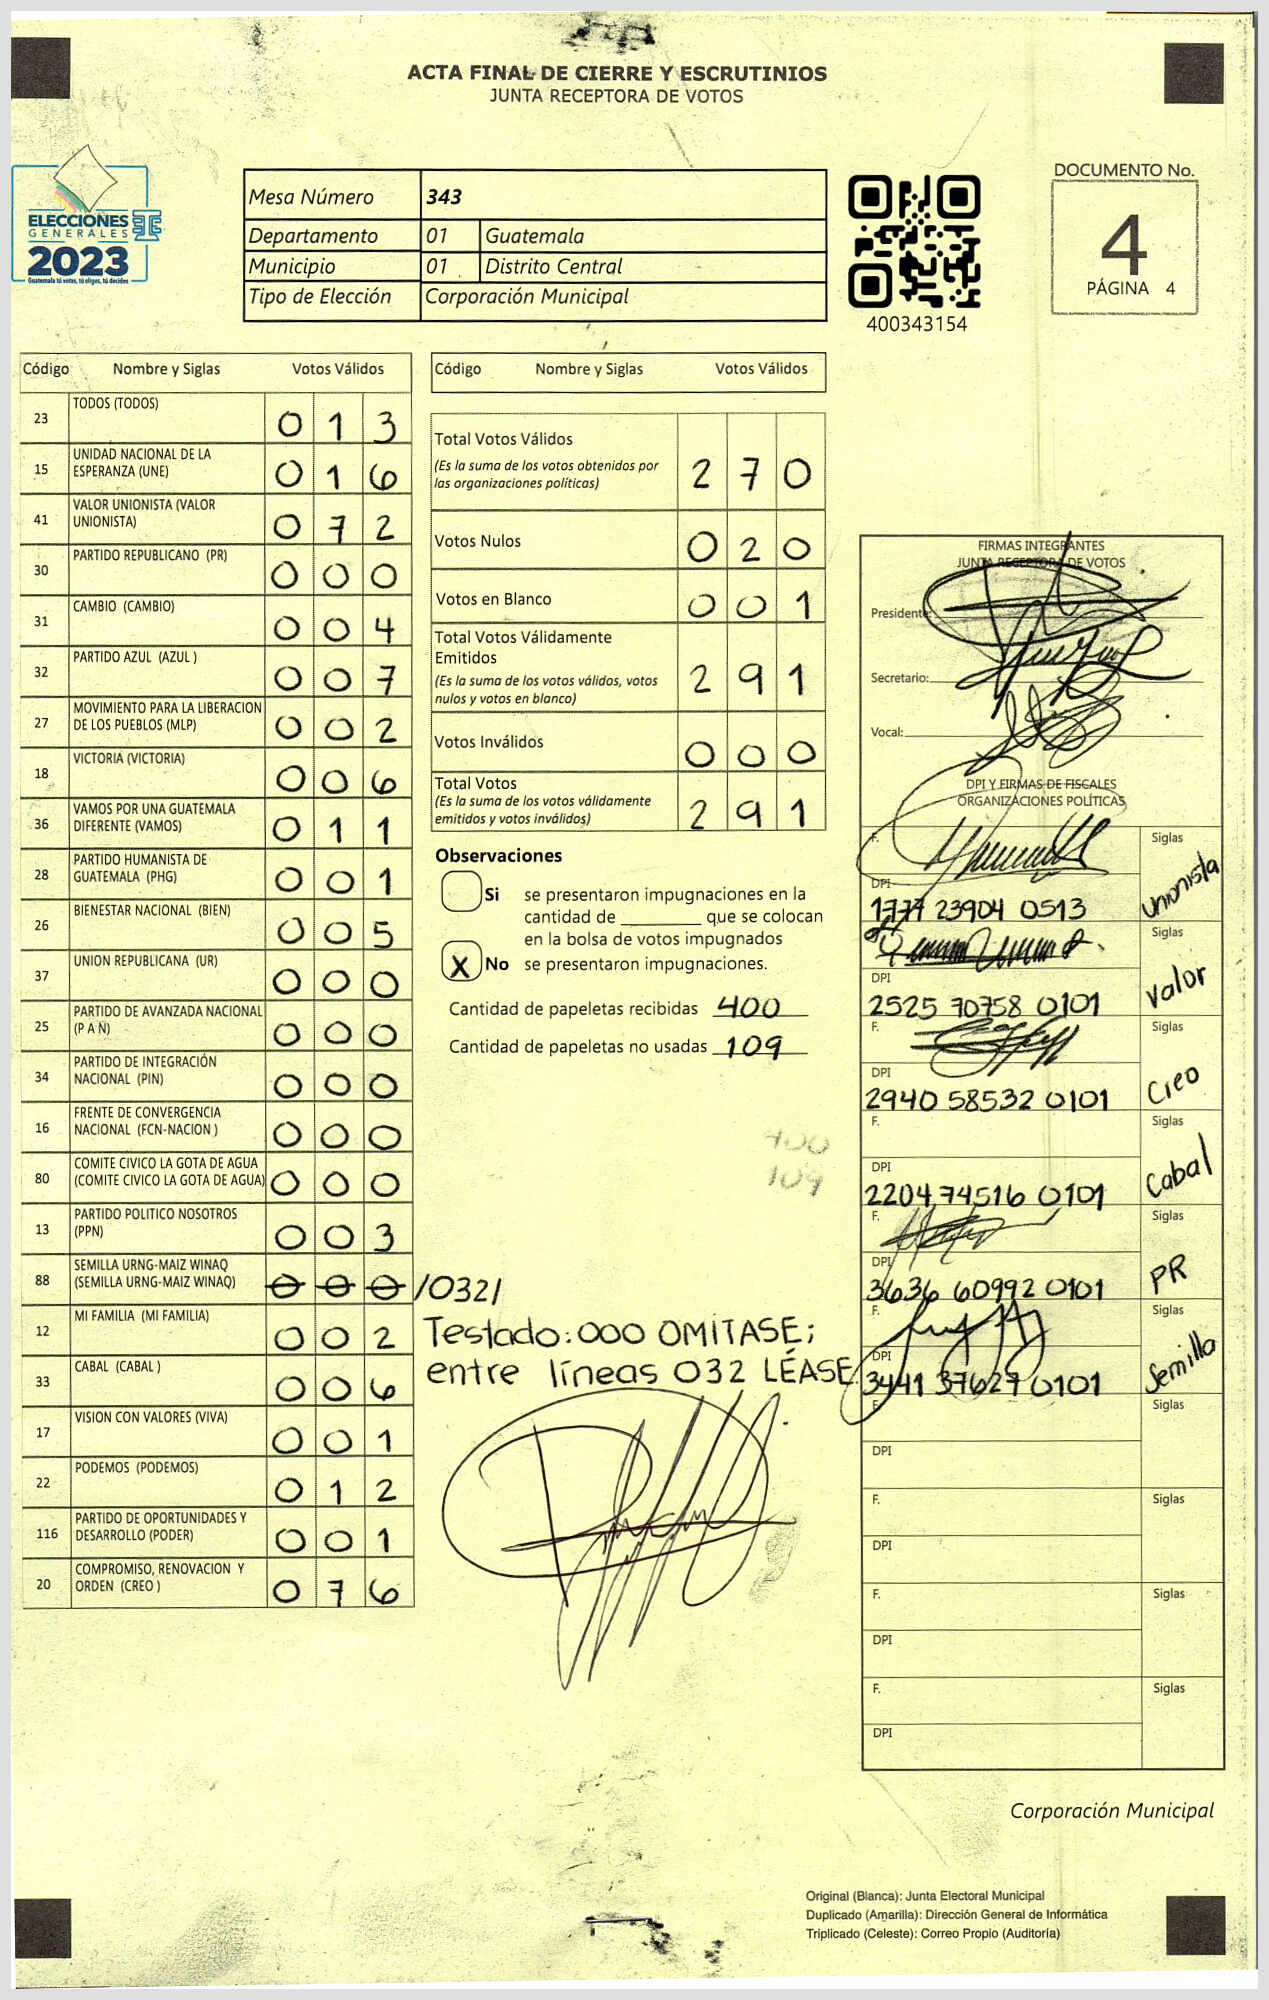 ACTA FINAL DE CIERRE Y ESCRUTINIOS
JUNTA RECEPTORA DE VOTOS
ELECCIONES
GENERALES
2023
Guatemala tú votas, tú eliges, tú decides
Mesa Número 343
Departamento 01 Guatemala
Municipio 01 Distrito Central
Tipo de Elección Corporación Municipal
400343154
DOCUMENTO No.
4
PÁGINA 4
Código Nombre y Siglas Votos Válidos
23 TODOS (TODOS) 0 1 3
15 UNIDAD NACIONAL DE LA
ESPERANZA (UNE) 0 1 6
41 VALOR UNIONISTA (VALOR
UNIONISTA) 0 7 2
30 PARTIDO REPUBLICANO (PR) 0 0 0
31 CAMBIO (CAMBIO) 0 0 4
32 PARTIDO AZUL (AZUL ) 0 0 7
27 MOVIMIENTO PARA LA LIBERACION
DE LOS PUEBLOS (MLP) 0 0 2
18 VICTORIA (VICTORIA) 0 0 6
36 VAMOS POR UNA GUATEMALA
DIFERENTE (VAMOS) 0 1 1
28 PARTIDO HUMANISTA DE
GUATEMALA (PHG) 0 0 1
26 BIENESTAR NACIONAL (BIEN) 0 0 5
37 UNION REPUBLICANA (UR) 0 0 0
25 PARTIDO DE AVANZADA NACIONAL
(P A N) 0 0 0
34 PARTIDO DE INTEGRACIÓN
NACIONAL (PIN) 0 0 0
16 FRENTE DE CONVERGENCIA
NACIONAL (FCN-NACION ) 0 0 0
80 COMITE CIVICO LA GOTA DE AGUA
(COMITE CIVICO LA GOTA DE AGUA) 0 0 0
13 PARTIDO POLITICO NOSOTROS
(PPN) 0 0 3
88 SEMILLA URNG-MAIZ WINAQ
(SEMILLA URNG-MAIZ WINAQ) 0 0 0 /032/
12 MI FAMILIA (MI FAMILIA) 0 0 2
33 CABAL (CABAL ) 0 0 6
17 VISION CON VALORES (VIVA) 0 0 1
22 PODEMOS (PODEMOS) 0 1 2
116 PARTIDO DE OPORTUNIDADES Y
DESARROLLO (PODER) 0 0 1
20 COMPROMISO, RENOVACION Y
ORDEN (CREO ) 0 7 6
Código Nombre y Siglas Votos Válidos
Total Votos Válidos
(Es la suma de los votos obtenidos por
las organizaciones políticas) 2 7 0
Votos Nulos 0 2 0
Votos en Blanco 0 0 1
Total Votos Válidamente
Emitidos
(Es la suma de los votos válidos, votos
nulos y votos en blanco) 2 9 1
Votos Inválidos 0 0 0
Total Votos
(Es la suma de los votos válidamente
emitidos y votos inválidos) 2 9 1
Observaciones
Si se presentaron impugnaciones en la
cantidad de ________ que se colocan
en la bolsa de votos impugnados
X No se presentaron impugnaciones.
Cantidad de papeletas recibidas 400
Cantidad de papeletas no usadas 109
400
109
Testado: 000 OMITASE;
entre líneas 032 LÉASE.
FIRMAS INTEGRANTES
JUNTA RECEPTORA DE VOTOS
Presidente:
Secretario:
Vocal:
DPI Y FIRMAS DE FISCALES
ORGANIZACIONES POLÍTICAS
F. Siglas
DPI
1777 23904 0513 Unionista
Siglas
DPI
2525 70758 0101 Valor
F. Siglas
DPI
2940 58532 0101 Creo
F. Siglas
DPI
2204 74516 0101 Cabal
F. Siglas
DPI
3636 60992 0101 PR
F. Siglas
DPI
3441 37627 0101 Semilla
F. Siglas
DPI
F. Siglas
DPI
F. Siglas
DPI
F. Siglas
DPI
Corporación Municipal
Original (Blanca): Junta Electoral Municipal
Duplicado (Amarilla): Dirección General de Informática
Triplicado (Celeste): Correo Propio (Auditoría)